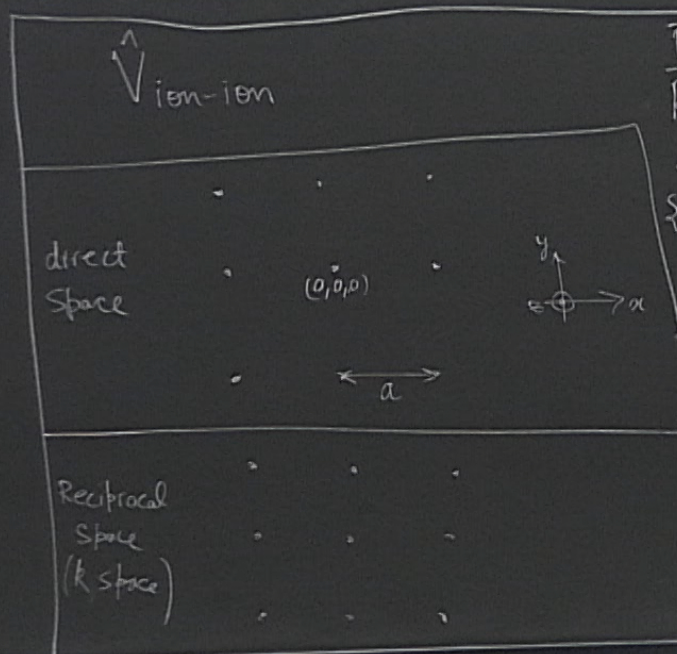 V̂ion-ion
direct
Space
(0,0,0)
y
x
a
Reciprocal
Space
(k space)